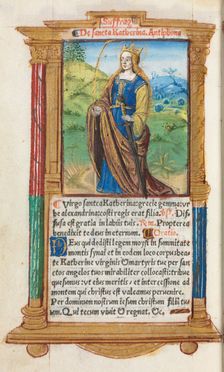 Suffrag.
De sancta Katherina. Antiphona
Virgo sancta Katherina: grecie gemma: vr
be alexandrina: costi regis erat filia. ℣. Dif
fusa est gratia in labiis tuis. Propterea
benedixit te deus in eternum. Oratio.
Deus qui dedisti legem moysi in summitate
montis synai et in eodem loco corpus bea
te Katherine virginis & martyris tue per san
ctos angelos tuos mirabiliter collocasti: tribue
quesumus ut eius meritis et intercessione ad
montem qui christus est valeamus pervenire.
Per dominum nostrum iesum christum filium tuum
Qui tecum vivit & regnat &c.